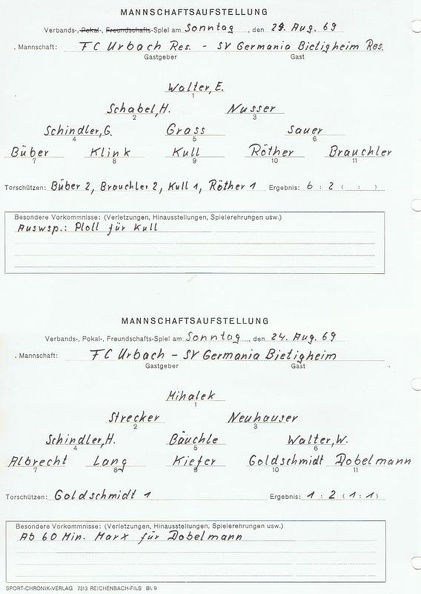 MANNSCHAFTSAUFSTELLUNG
Verbands-, Pokal-, Freundschafts-Spiel am Sonntag, den 24. Aug. 69
. Mannschaft: FC Urbach Res. - SV Germania Bietigheim Res.
Gastgeber Gast
Walter, E.
1
Schabel, H. Nusser
2 3
Schindler, G. Grass Sauer
4 5 6
Büber Klink Kull Röther Brauchler
7 8 9 10 11
Torschützen: Büber 2, Brauchler 2, Kull 1, Röther 1 Ergebnis: 6 : 2 ( : )
Besondere Vorkommnisse: (Verletzungen, Hinausstellungen, Spielerehrungen usw.)
Auswsp.: Ploll für Kull
MANNSCHAFTSAUFSTELLUNG
Verbands-, Pokal-, Freundschafts-Spiel am Sonntag, den 24. Aug. 69
. Mannschaft: FC Urbach - SV Germania Bietigheim
Gastgeber Gast
Mihalek
1
Strecker Neuhauser
2 3
Schindler, H. Bäuchle Walter, W.
4 5 6
Albrecht Lang Kiefer Goldschmidt Dobelmann
7 8 9 10 11
Torschützen: Goldschmidt 1 Ergebnis: 1 : 2 ( 1 : 1 )
Besondere Vorkommnisse: (Verletzungen, Hinausstellungen, Spielerehrungen usw.)
Ab 60 Min. Marx für Dobelmann
SPORT-CHRONIK-VERLAG 7313 REICHENBACH-FILS Bl. 9